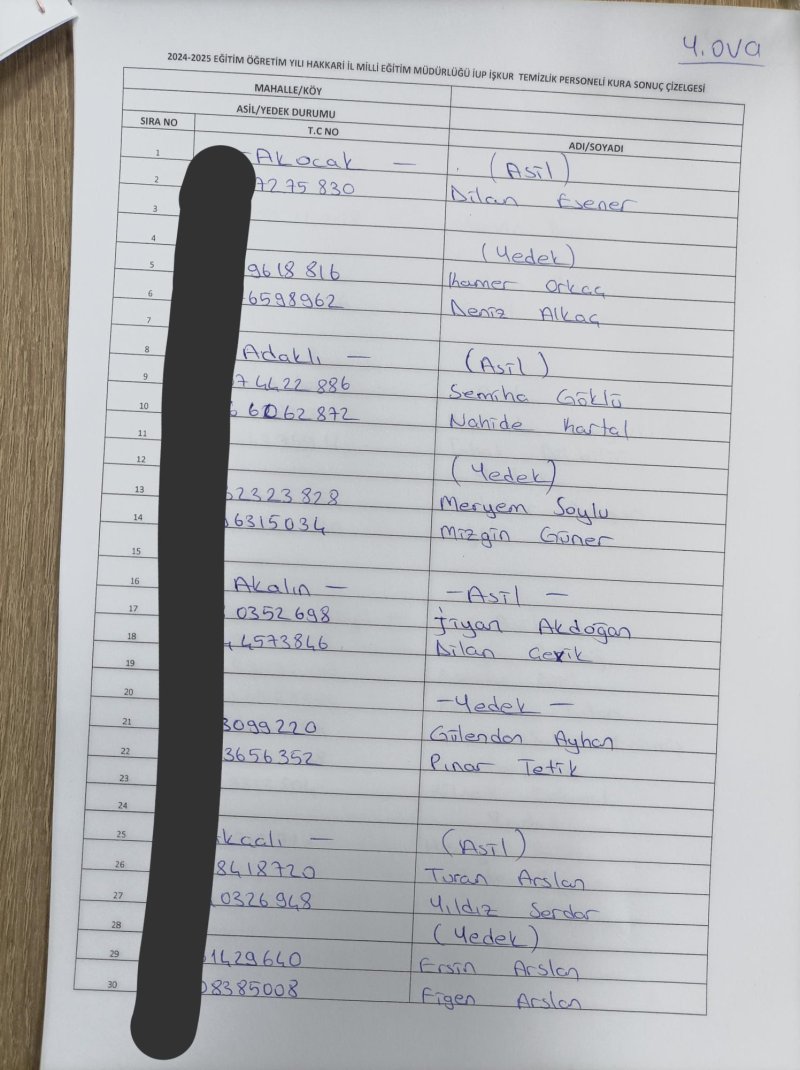 4.ova
2024-2025 EĞİTİM ÖĞRETİM YILI HAKKARİ İL MİLLİ EĞİTİM MÜDÜRLÜĞÜ İUP İŞKUR TEMİZLİK PERSONELİ KURA SONUÇ ÇİZELGESİ
MAHALLE/KÖY
ASİL/YEDEK DURUMU
SIRA NO T.C NO ADI/SOYADI
1 -Akocak - (Asil)
2 7275 830 Dilan Esener
3
4 (Yedek)
5 9618 816 Kamer Orkaç
6 6598962 Deniz Alkaç
7
8 Adaklı - (Asil)
9 7 4422 886 Semiha Göklü
10 6062 872 Nahide Kartal
11
12 (Yedek)
13 2323 828 Meryem Soylu
14 6315034 Mizgin Güner
15
16 Akalın - -Asil -
17 0352 698 Jiyan Akdoğan
18 4573846 Dilan Çevik
19
20 -Yedek -
21 3099220 Gülendan Ayhan
22 3656352 Pınar Tetik
23
24
25 kçalı - (Asil)
26 8418720 Turan Arslan
27 0326948 Yıldız Serdar
28 (Yedek)
29 1429640 Ersin Arslan
30 8385008 Figen Arslan